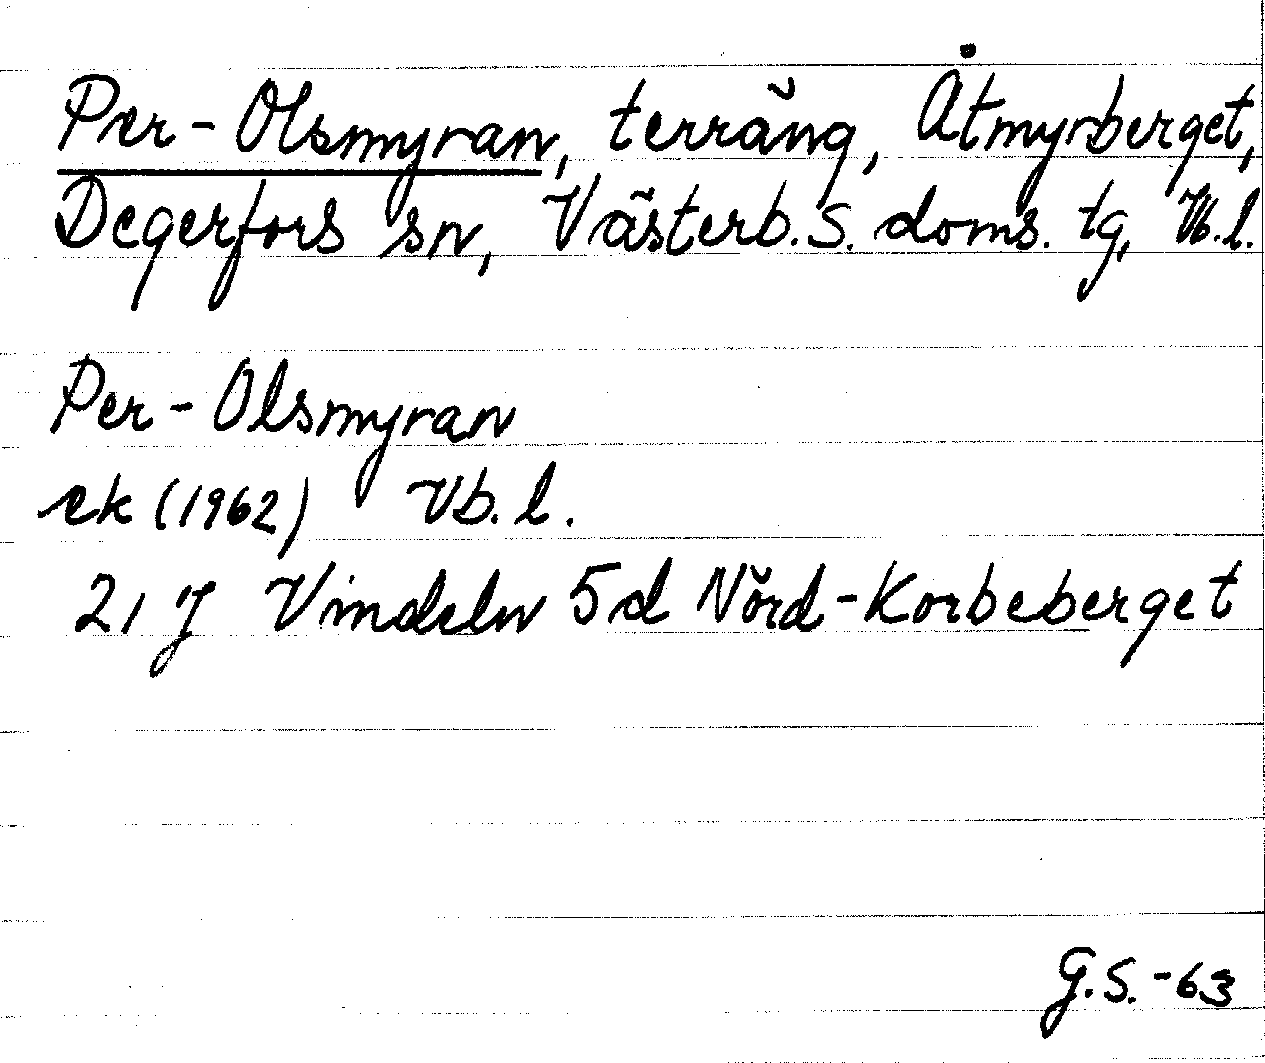 Per-Olsmyran, terräng, Åtmyrberget,
Degerfors sn, Västerb. s. doms. tg, Vb. l.
Per-Olsmyran
ek (1962) Vb. l.
21 J Vindeln 5d Nörd-Korbeberget
G.S. -63